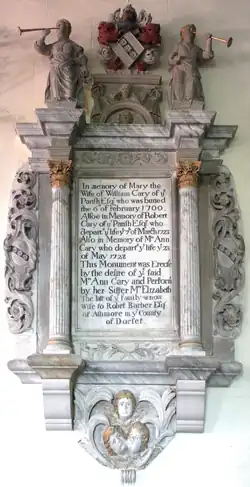 In memory of Mary the
Wife of William Cary of yͤ
Parish Esqͬ who was buried
the 6 of February 1700
Also in Memory of Robert
Cary of yͤ Parish Esqͬ who
depart'd life yͤ of March
Also in Memory of Mͬˢ Ann
Cary who depart'd yˢ life yͤ 22
of May 1728
This Monument was Erected
by the desire of yͤ said
Mͬˢ Ann Cary and Perform'd
by her Sister Mͬˢ Elizabeth
The of yͤ family & now
wife to Robert Barber Esqͬ
of Ashmore in yͤ County
of Dorset.